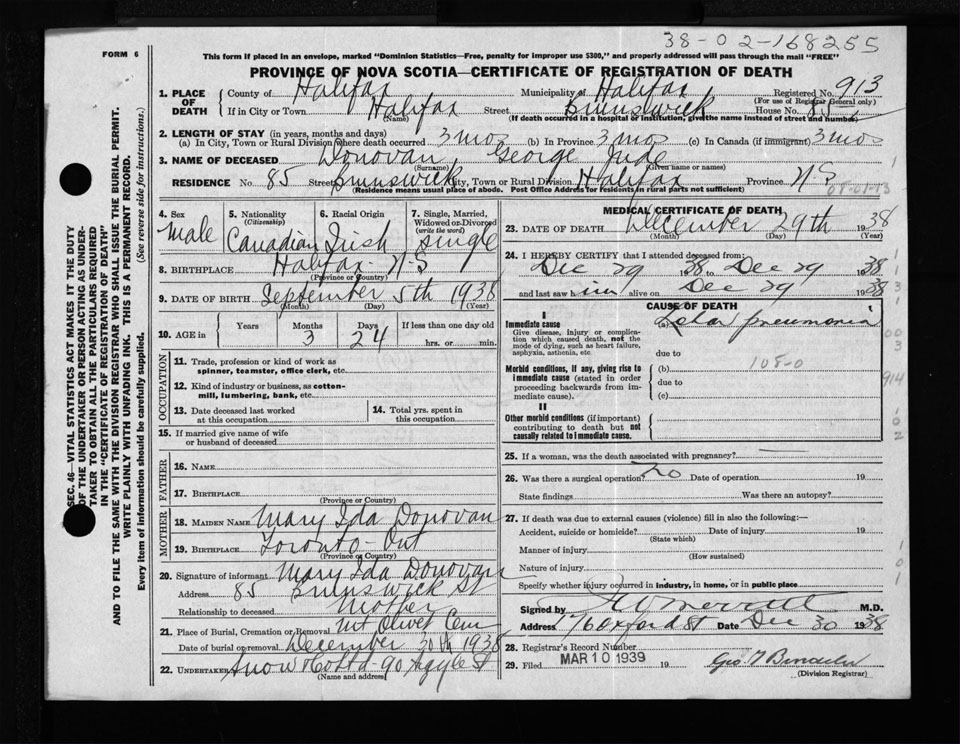 38-02-168255
FORM 6
This form if placed in an envelope, marked "Dominion Statistics—Free, penalty for improper use $300," and properly addressed will pass through the mail "FREE"
PROVINCE OF NOVA SCOTIA—CERTIFICATE OF REGISTRATION OF DEATH
1. PLACE OF DEATH
County of Halifax Municipality of Halifax Registered No. 913
(For use of Registrar General only)
If in City or Town Halifax Street Brunswick House No. 85
(Name) (If death occurred in a hospital or institution, give the name instead of street and number)
2. LENGTH OF STAY (in years, months and days)
(a) In City, Town or Rural Division where death occurred 3 mos (b) In Province 3 mos (c) In Canada (if immigrant) 3 mos
3. NAME OF DECEASED Donovan, George Jude
(Surname) (Given name or names)
RESIDENCE No. 85 Street Brunswick City, Town or Rural Division Halifax Province N S
(Residence means usual place of abode. Post Office Address for residents in rural parts not sufficient)
08-01-13
4. Sex Male
5. Nationality (Citizenship) Canadian
6. Racial Origin Irish
7. Single, Married, Widowed or Divorced (write the word) single
8. BIRTHPLACE Halifax - N-S
(Province or Country)
9. DATE OF BIRTH September 5th 1938
(Month) (Day) (Year)
10. AGE in Years Months 3 Days 24 If less than one day
hrs. or min.
OCCUPATION
11. Trade, profession or kind of work as spinner, teamster, office clerk, etc.
12. Kind of industry or business, as cotton-mill, lumbering, bank, etc.
13. Date deceased last worked at this occupation
14. Total yrs. spent in this occupation
15. If married give name of wife or husband of deceased
FATHER
16. NAME
17. BIRTHPLACE
(Province or Country)
MOTHER
18. MAIDEN NAME Mary Ida Donovan
19. BIRTHPLACE Toronto - Ont
(Province or Country)
20. Signature of informant Mary Ida Donovan
Address 85 Brunswick St
Relationship to deceased Mother
21. Place of Burial, Cremation or Removal Mt Olivet Cem
Date of burial or removal December 30th 1938
22. UNDERTAKER Snow & Co Ltd - 90 Argyle St
(Name and address)
MEDICAL CERTIFICATE OF DEATH
23. DATE OF DEATH December 29th 1938
(Month) (Day) (Year)
24. I HEREBY CERTIFY that I attended deceased from:
Dec 29 1938 to Dec 29 1938
and last saw him alive on Dec 29 1938
CAUSE OF DEATH
I
Immediate cause
Give disease, injury or complication which caused death, not the mode of dying, such as heart failure, asphyxia, asthenia, etc
(a) Lobar pneumonia
due to
Morbid conditions, if any, giving rise to immediate cause (stated in order proceeding backwards from immediate cause).
(b) 108-0
due to
(c)
II
Other morbid conditions (if important) contributing to death but not causally related to immediate cause.
25. If a woman, was the death associated with pregnancy?
26. Was there a surgical operation? no Date of operation 19
State findings Was there an autopsy?
27. If death was due to external causes (violence) fill in also the following:—
Accident, suicide or homicide? Date of injury 19
(State which)
Manner of injury
(How sustained)
Nature of injury
Specify whether injury occurred in industry, in home, or in public place
Signed by M.D.
Address 76 Oxford St Date Dec 30 1938
28. Registrar's Record Number
29. Filed MAR 10 1939 19
(Division Registrar)
SEC. 46—VITAL STATISTICS ACT MAKES IT THE DUTY
OF THE UNDERTAKER OR PERSON ACTING AS UNDER-
TAKER TO OBTAIN ALL THE PARTICULARS REQUIRED
IN THE "CERTIFICATE OF REGISTRATION OF DEATH"
AND TO FILE THE SAME WITH THE DIVISION REGISTRAR WHO SHALL ISSUE THE BURIAL PERMIT.
WRITE PLAINLY WITH UNFADING INK. THIS IS A PERMANENT RECORD.
Every item of information should be carefully supplied. (See reverse side for instructions.)